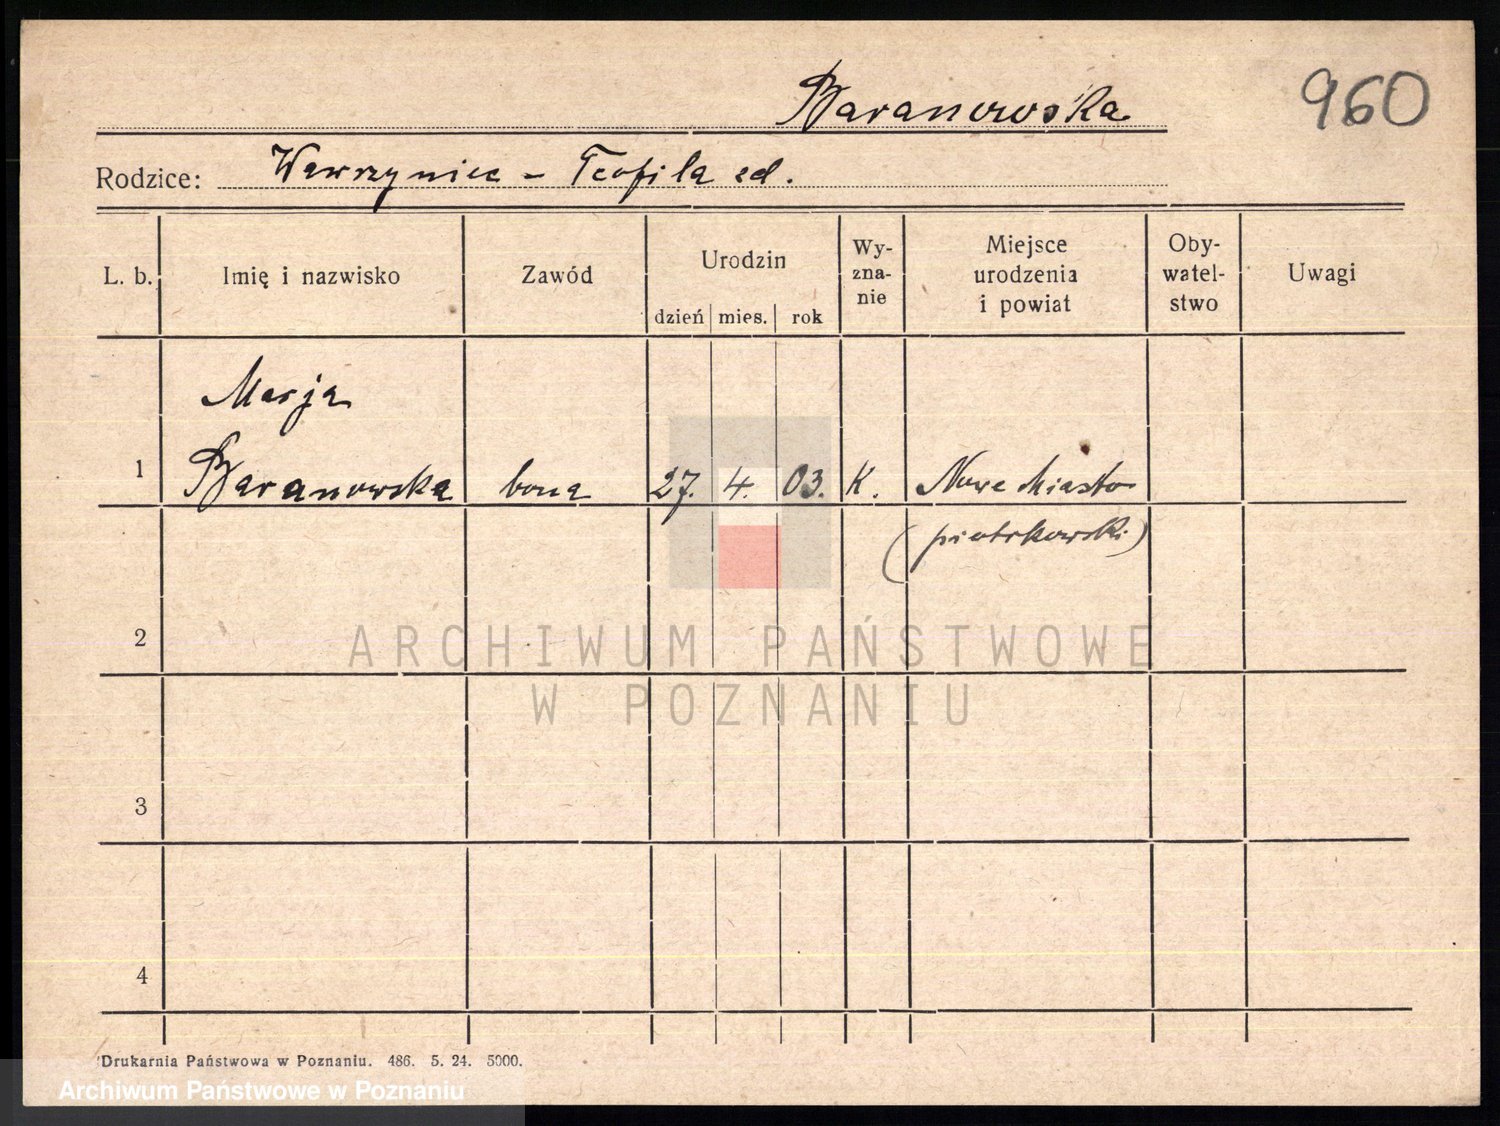 Baranowska
960
Rodzice: Wawrzyniec - Teofila zd.
L. b.
Imię i nazwisko
Zawód
Urodzin
dzień mies. rok
Wy-
zna-
nie
Miejsce
urodzenia
i powiat
Oby-
watel-
stwo
Uwagi
Marja
1 Baranowska bona 27. 4. 03. K. Nowe Miasto
(piotrkowski)
2
3
4
ARCHIWUM PAŃSTWOWE
W POZNANIU
Drukarnia Państwowa w Poznaniu. 486. 5. 24. 5000.
Archiwum Państwowe w Poznaniu